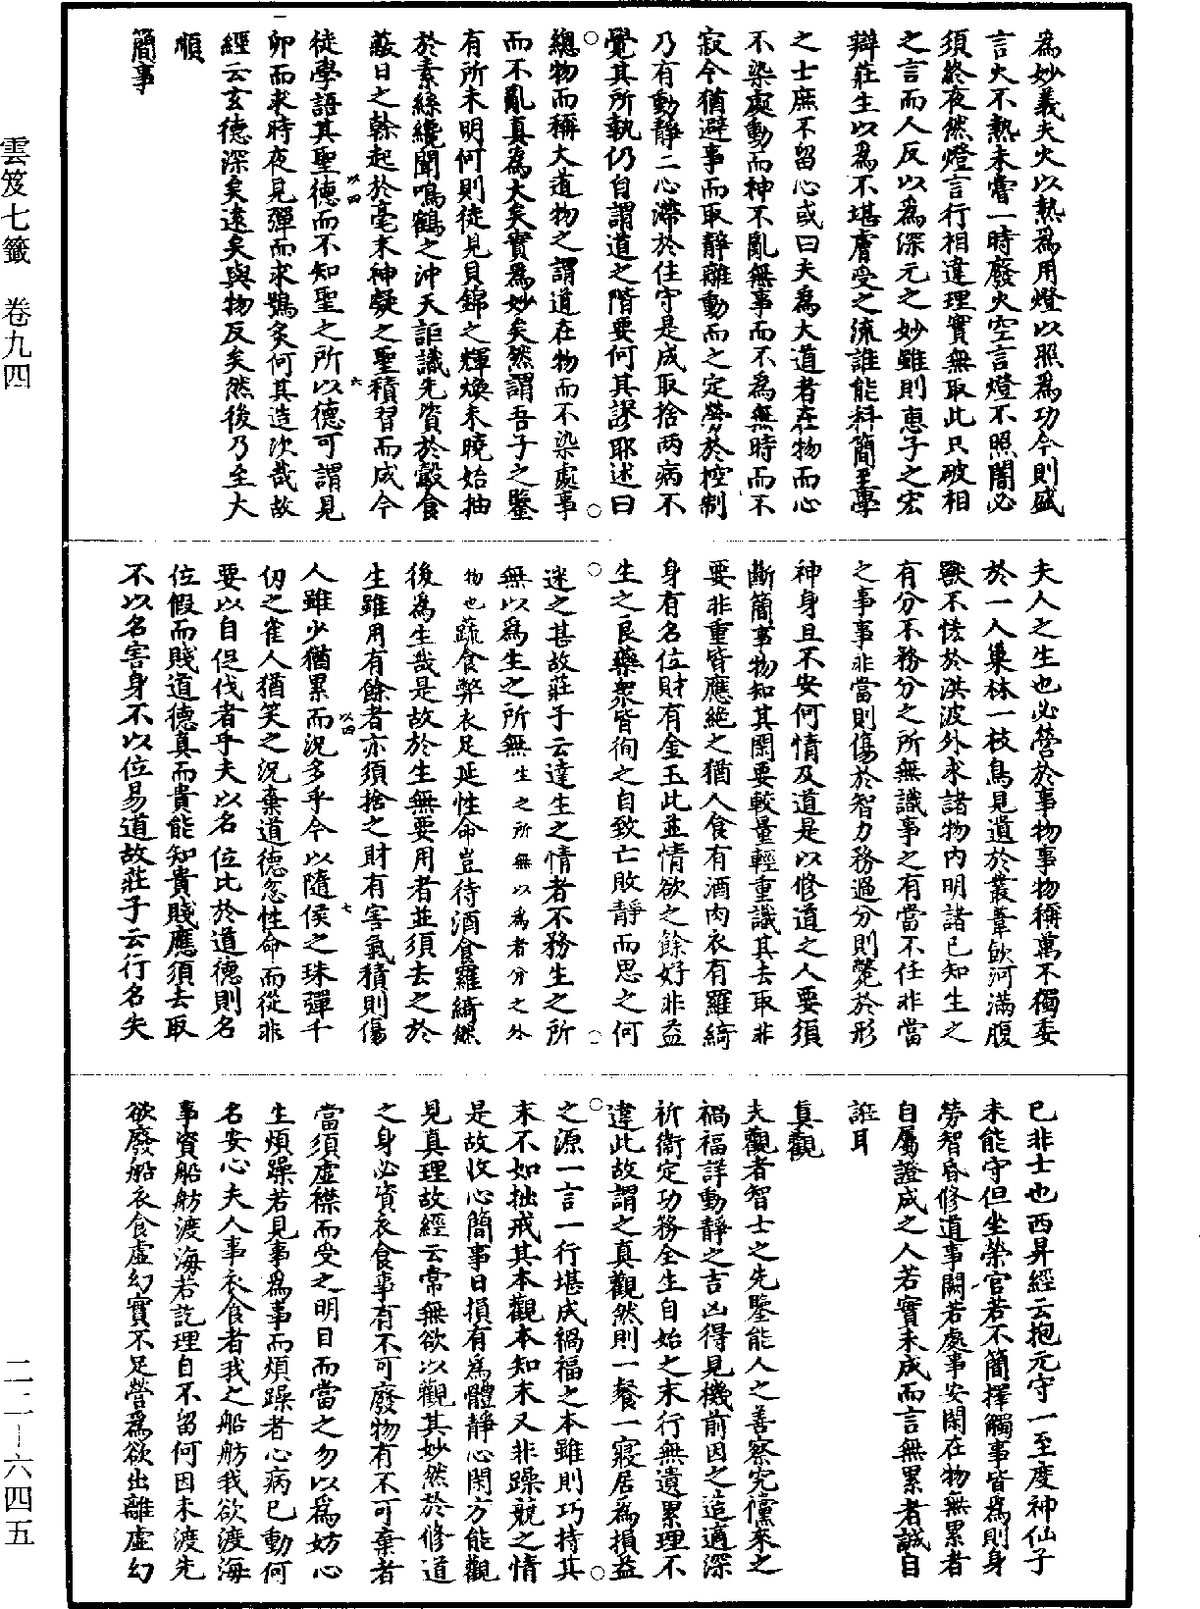 雲笈七籤　卷九四
二二—六四五
為妙義夫火以熱為用燈以照為功今則盛
言火不熱未嘗一時廢火空言燈不照闇必
須終夜然燈言行相違理實無取此只破相
之言而人反以為深元之妙雖則惠子之宏
辯莊生以為不堪膚受之流誰能科簡至學
之士庶不留心或曰夫為大道者在物而心
不染處動而神不亂無事而不為無時而不
寂今猶避事而取靜離動而之定勞於控制
乃有動靜二心滯於住守是成取捨兩病不
覺其所執仍自謂道之階要何其謬耶述曰
總物而稱大道物之謂道在物而不染處事
而不亂真為大矣實為妙矣然謂吾子之鑒
有所未明何則徒見貝錦之輝煥未曉始抽
於素絲纔聞鳴鶴之沖天詎識先資於鷇食
蔽日之榦起於毫末神凝之聖積習而成今
徒學語其聖德而不知聖之所以德可謂見
卯而求時夜見彈而求鴞炙何其造次哉故
經云玄德深矣遠矣與物反矣然後乃至大
順
簡事
夫人之生也必營於事物事物稱萬不獨委
於一人巢林一枝鳥見遺於叢葦飲河滿腹
獸不悋於洪波外求諸物內明諸已知生之
有分不務分之所無識事之有當不任非當
之事事非當則傷於智力務過分則斃於形
神身且不安何情及道是以修道之人要須
斷簡事物知其閑要較量輕重識其去取非
要非重皆應絶之猶人食有酒肉衣有羅綺
身有名位財有金玉此並情欲之餘好非益
生之良藥眾皆徇之自致亡敗靜而思之何
迷之甚故莊子云達生之情者不務生之所
無以為生之所無生之所無以為者分之外
物也蔬食弊衣足延性命豈待酒食羅綺然
後為生哉是故於生無要用者並須去之於
生雖用有餘者亦須捨之財有害氣積則傷
人雖少猶累而況多乎今以隨侯之珠彈千
仞之雀人猶笑之況棄道德忽性命而從非
要以自促伐者乎夫以名位比於道德則名
位假而賤道德真而貴能知貴賤應須去取
不以名害身不以位易道故莊子云行名失
已非士也西昇經云抱元守一至度神仙子
未能守但坐榮官若不簡擇觸事皆為則身
勞智昏修道事闕若處事安閑在物無累者
自屬證成之人若實未成而言無累者誠自
誑耳
真觀
夫觀者智士之先鑒能人之善察究儻來之
禍福詳動靜之吉凶得見機前因之造適深
祈衞定功務全生自始之末行無遺累理不
違此故謂之真觀然則一餐一寢居為損益
之源一言一行堪成禍福之本雖則巧持其
末不如拙戒其本觀本知末又非躁競之情
是故收心簡事日損有為體靜心閑方能觀
見真理故經云常無欲以觀其妙然於修道
之身必資衣食事有不可廢物有不可棄者
當須虛襟而受之明目而當之勿以為妨心
生煩躁若見事為事而煩躁者心病已動何
名安心夫人事衣食者我之船舫我欲渡海
事資船舫渡海若訖理自不留何因未渡先
欲廢船衣食虛幻實不足營為欲出離虛幻